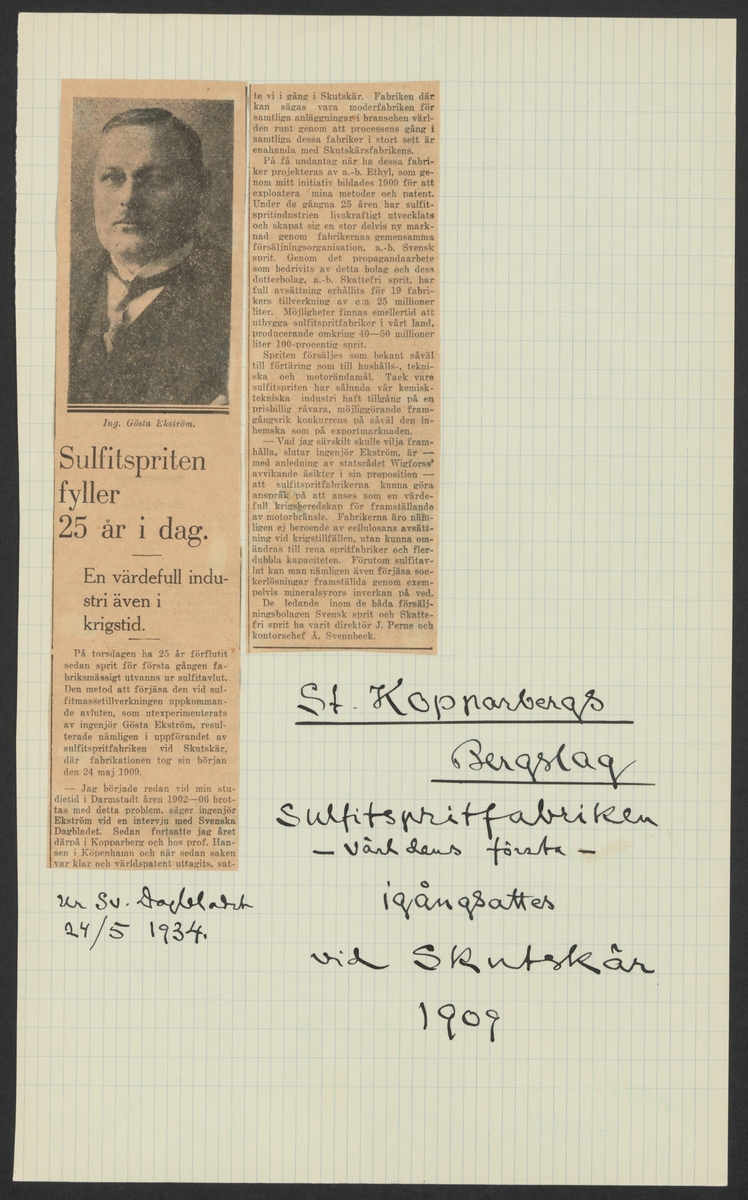 Ing. Gösta Ekström.
Sulfitspriten
fyller
25 år i dag.
En värdefull indu-
stri även i
krigstid.
På torsdagen ha 25 år förflutit
sedan sprit för första gången fa-
briksmässigt utvanns ur sulfitavlut.
Den metod att förjäsa den vid sul-
fitmassetillverkningen uppkomman-
de avluten, som utexperimenterats
av ingenjör Gösta Ekström, resul-
terade nämligen i uppförandet av
sulfitspritfabriken vid Skutskär,
där fabrikationen tog sin början
den 24 maj 1909.
— Jag började redan vid min stu-
dietid i Darmstadt åren 1902—06 brot-
tas med detta problem, säger ingenjör
Ekström vid en intervju med Svenska
Dagbladet. Sedan fortsatte jag året
därpå i Kopparberg och hos prof. Han-
sen i Köpenhamn och när sedan saken
var klar och världspatent uttagits, sat-
te vi i gång i Skutskär. Fabriken där
kan sägas vara moderfabriken för
samtliga anläggningar i branschen värl-
den runt genom att processens gång i
samtliga dessa fabriker i stort sett är
enahanda med Skutskärsfabrikens.
På få undantag när ha dessa fabri-
ker projekteras av a.-b. Ethyl, som ge-
nom mitt initiativ bildades 1909 för att
exploatera mina metoder och patent.
Under de gångna 25 åren har sulfit-
spritindustrien livskraftigt utvecklats
och skapat sig en stor delvis ny mark-
nad genom fabrikernas gemensamma
försäljningsorganisation, a.-b. Svensk
sprit. Genom det propagandaarbete
som bedrivits av detta bolag och dess
dotterbolag, a.-b. Skattefri sprit, har
full avsättning erhållits för 19 fabri-
kers tillverkning av c:a 25 millioner
liter. Möjligheter finnas emellertid att
utbygga sulfitspritfabriker i vårt land,
producerande omkring 40—50 millioner
liter 100-procentig sprit.
Spriten försäljes som bekant såväl
till förtäring som till hushålls-, tekni-
ska och motorändamål. Tack vare
sulfitspriten har sålunda vår kemisk-
tekniska industri haft tillgång på en
prisbillig råvara, möjliggörande fram-
gångsrik konkurrens på såväl den in-
hemska som på exportmarknaden.
— Vad jag särskilt skulle vilja fram-
hålla, slutar ingenjör Ekström, är —
med anledning av statsrådet Wigforss'
avvikande åsikter i sin proposition —
att sulfitspritfabrikerna kunna göra
anspråk på att anses som en värde-
full krigsberedskap för framställande
av motorbränsle. Fabrikerna äro näm-
ligen ej beroende av cellulosans avsätt-
ning vid krigstillfällen, utan kunna om-
ändras till rena spritfabriker och fler-
dubbla kapaciteten. Förutom sulfitav-
lut kan man nämligen även förjäsa soc-
kerlösningar framställda genom exem-
pelvis mineralsyrors inverkan på ved.
De ledande inom de båda försälj-
ningsbolagen Svensk sprit och Skatte-
fri sprit ha varit direktör J. Perne och
kontorschef Å. Svennbeck.
ur Sv. Dagbladet
24/5 1934.
St. Kopparbergs
Bergslag
Sulfitspritfabriken
— världens första —
igångsattes
vid Skutskär
1909